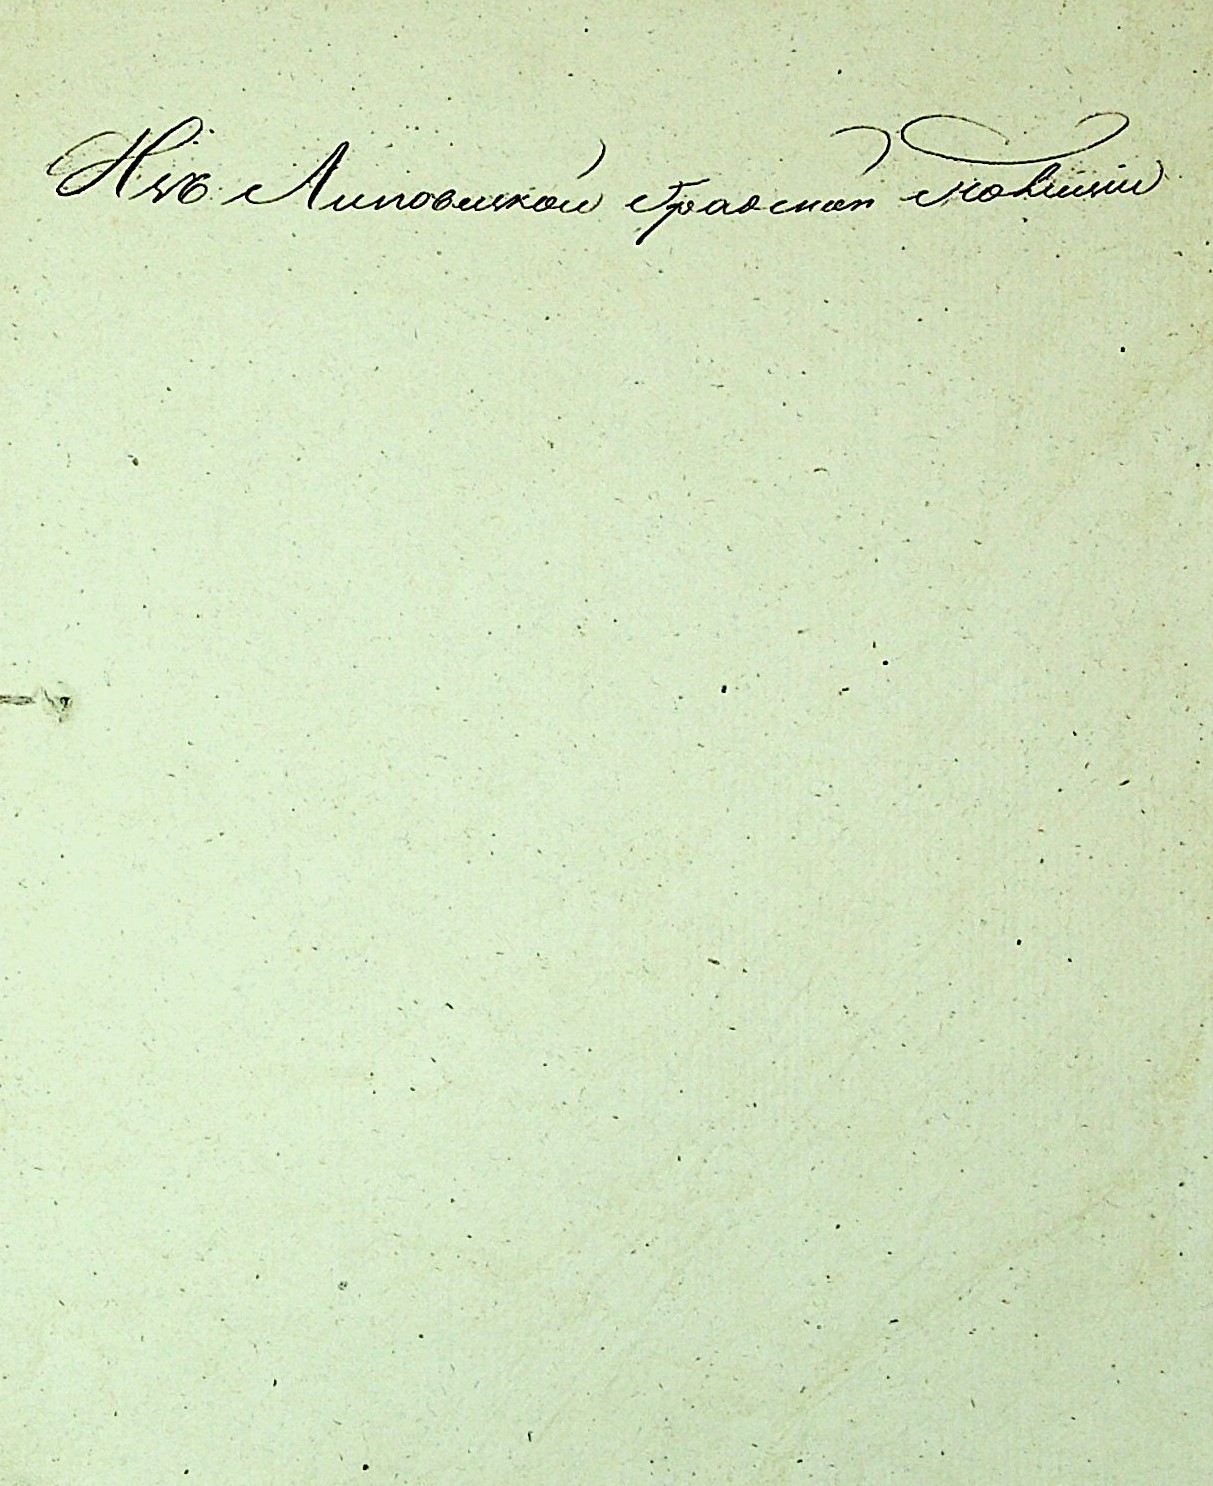 Изъ Липовецкой Градской Полиции